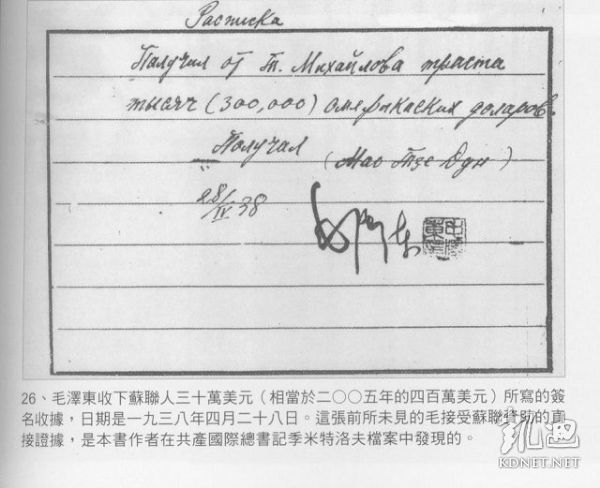 Расписка
Получил от Т. Михайлова триста
тысяч (300,000) америкаских доларов.
Получил (Мао Тзе Дун)
28/IV 38
毛泽东
26、毛澤東收下蘇聯人三十萬美元（相當於二〇〇五年的四百萬美元）所寫的簽
名收據，日期是一九三八年四月二十八日。這張前所未見的毛接受蘇聯資助的直
接證據，是本書作者在共產國際總書記季米特洛夫檔案中發現的。
凯迪
KDNET.NET